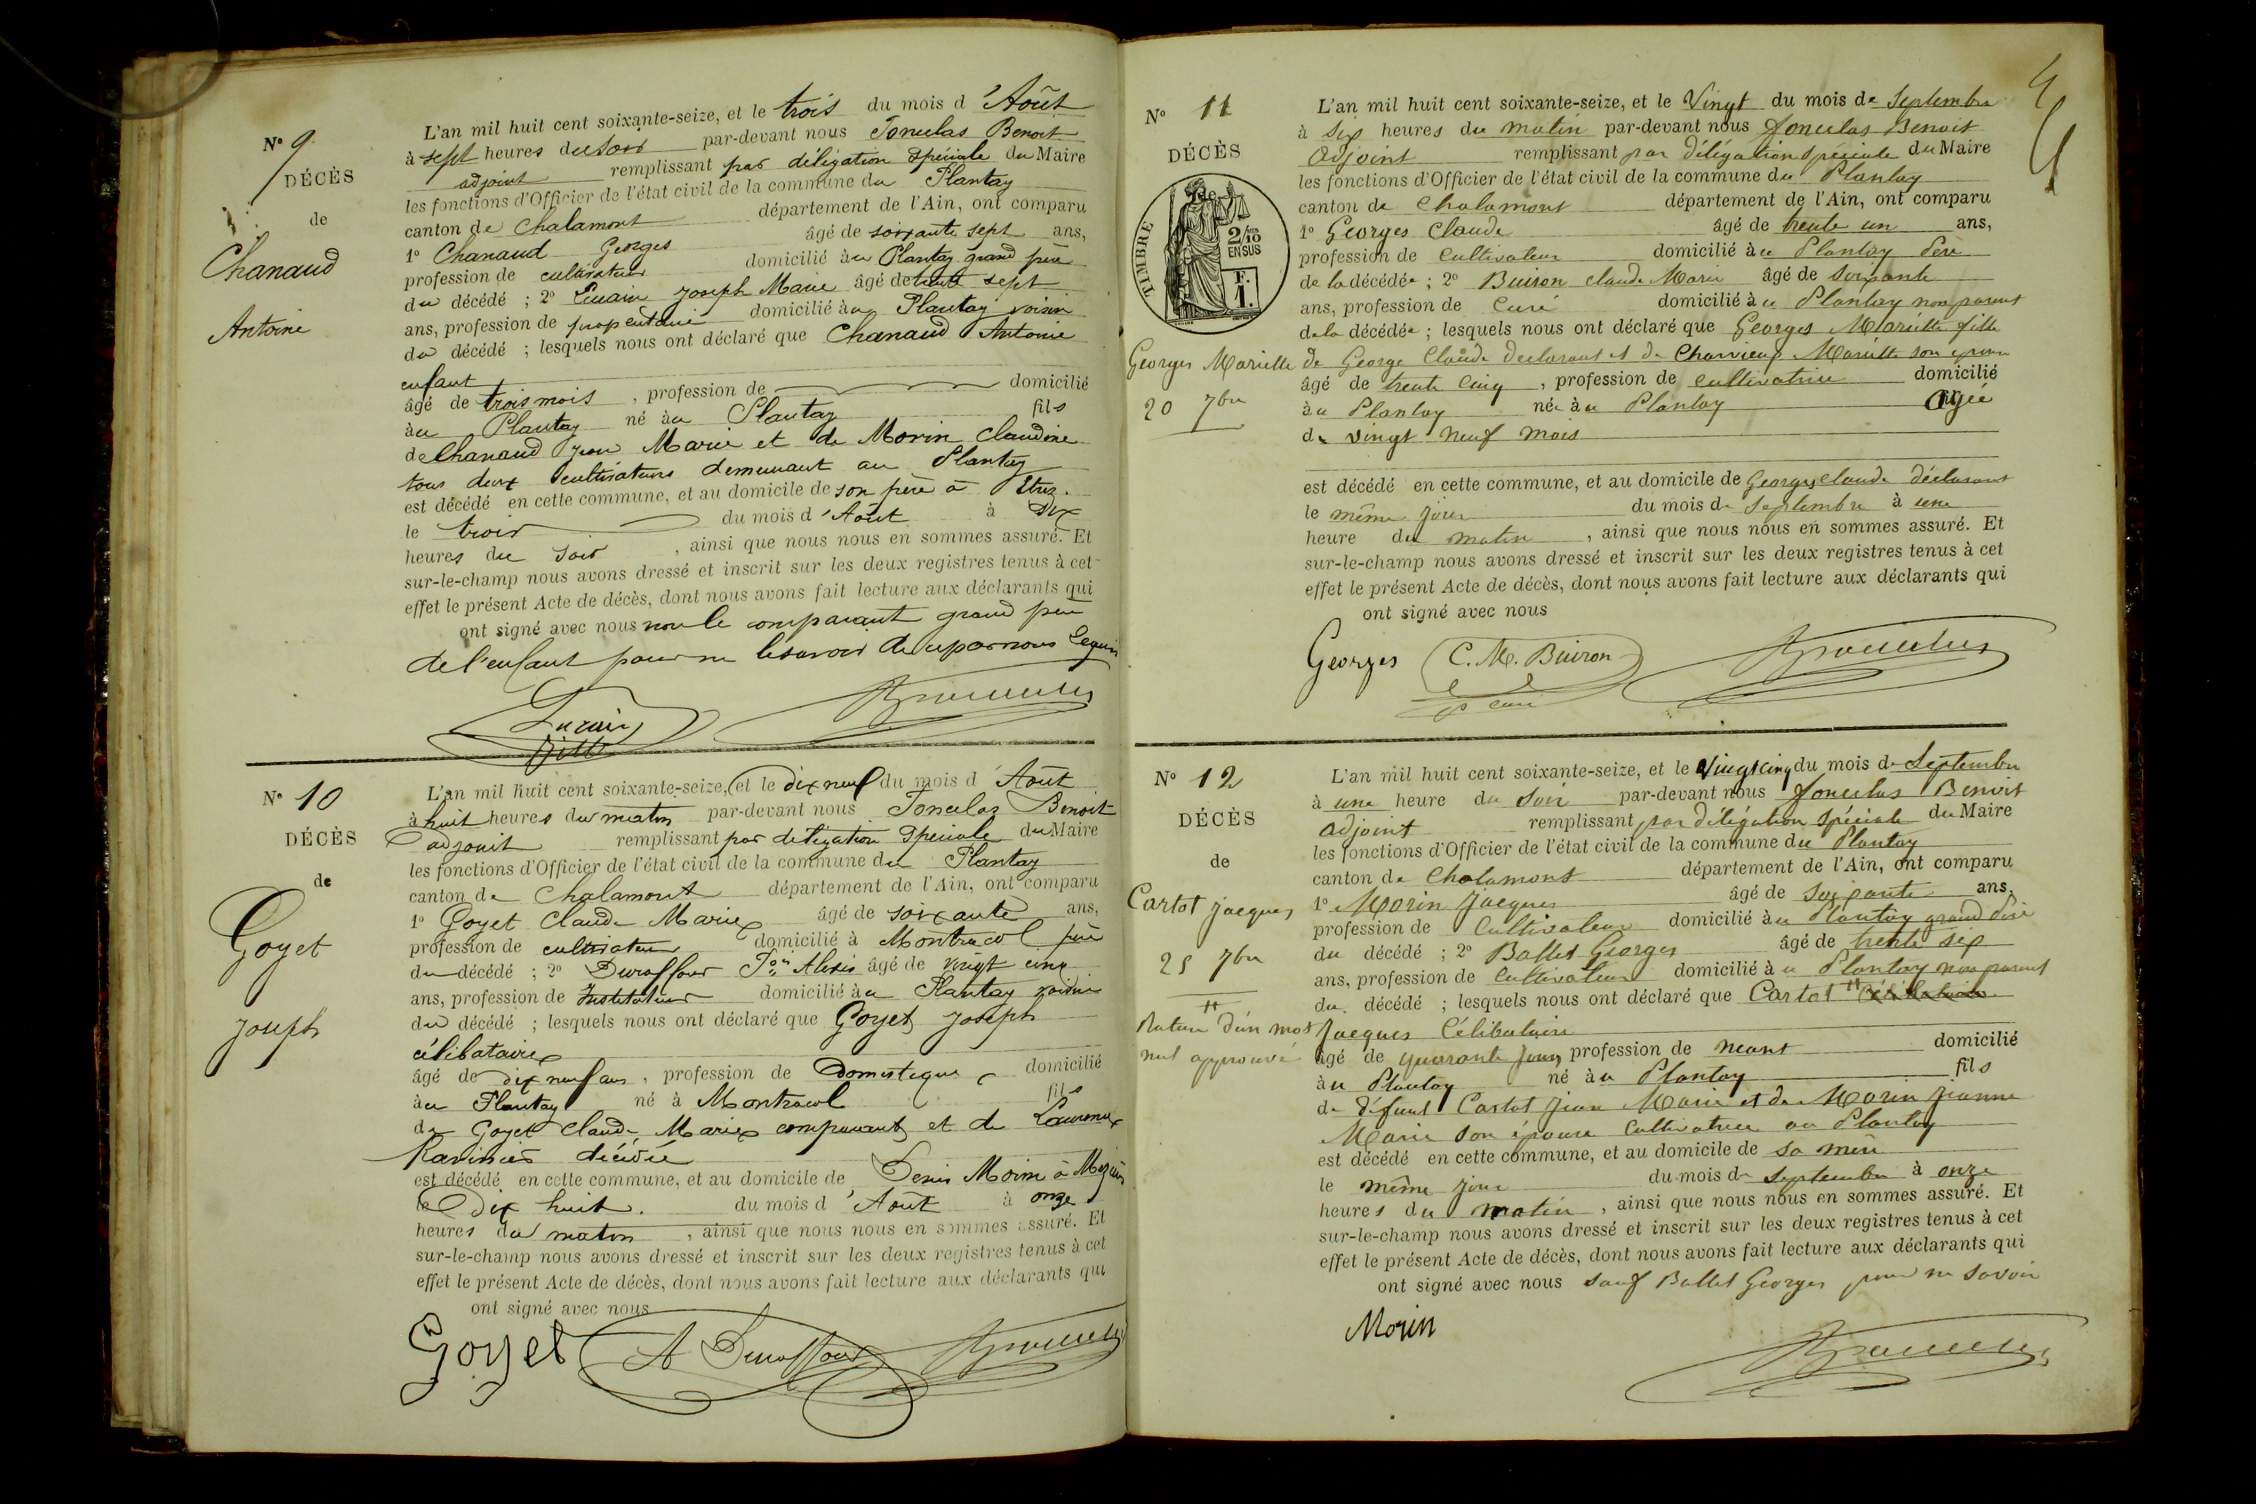 N° 9
DÉCÈS
de
Chanaud
Antoine
L'an mil huit cent soixante-seize, et le trois du mois d'Août
à sept heures du soir par-devant nous Benoit
adjoint remplissant par délégation spéciale du Maire
les fonctions d'Officier de l'état civil de la commune du Plantay
canton de Chalamont département de l'Ain, ont comparu
1° Chanaud Georges âgé de soixante sept ans,
profession de cultivateur domicilié au Plantay grand père
du décédé ; 2° Joseph Marie âgé de trente sept
ans, profession de propriétaire domicilié au Plantay voisin
du décédé ; lesquels nous ont déclaré que Chanaud Antoine
enfant
âgé de trois mois, profession de domicilié
au Plantay né au Plantay fils
de Chanaud Jean Marie et de Morin Claudine
tous deux cultivateurs demeurant au Plantay
est décédé en cette commune, et au domicile de son père à
le trois du mois d'Août à
heures du soir, ainsi que nous nous en sommes assuré. Et
sur-le-champ nous avons dressé et inscrit sur les deux registres tenus à cet
effet le présent Acte de décès, dont nous avons fait lecture aux déclarants qui
ont signé avec nous non le comparant grand père
de l'enfant pour ne le savoir de ce par nous requis
N° 10
DÉCÈS
de
Goyet
Joseph
L'an mil huit cent soixante-seize, et le dix neuf du mois d'Août
à huit heures du matin par-devant nous Benoit
adjoint remplissant par délégation spéciale du Maire
les fonctions d'Officier de l'état civil de la commune du Plantay
canton de Chalamont département de l'Ain, ont comparu
1° Goyet Claude Marie âgé de soixante ans,
profession de cultivateur domicilié à Montracol père
du décédé ; 2° Duraffour Alexis âgé de vingt cinq
ans, profession de Instituteur domicilié au Plantay voisin
du décédé ; lesquels nous ont déclaré que Goyet Joseph
célibataire
âgé de dix neuf ans, profession de Domestique domicilié
au Plantay né à Montracol fils
de Goyet Claude Marie comparant et de
décédée
est décédé en cette commune, et au domicile de Denis
le Dix huit. du mois d'Août à onze
heures du matin, ainsi que nous nous en sommes assuré. Et
sur-le-champ nous avons dressé et inscrit sur les deux registres tenus à cet
effet le présent Acte de décès, dont nous avons fait lecture aux déclarants qui
ont signé avec nous
Goyet A Duraffour
N° 11
DÉCÈS
de
TIMBRE
2/10 EN SUS
F. 1.
Georges Mariette
20 7bre
L'an mil huit cent soixante-seize, et le Vingt du mois de Septembre
à six heures du matin par-devant nous Benoit
Adjoint remplissant par délégation spéciale du Maire
les fonctions d'Officier de l'état civil de la commune du Plantay
canton de Chalamont département de l'Ain, ont comparu
1° Georges Claude âgé de trente un ans,
profession de Cultivateur domicilié au Plantay Père
de la décédée ; 2° Buiron Claude Marie âgé de soixante
ans, profession de Curé domicilié au Plantay non parent
de la décédée ; lesquels nous ont déclaré que Georges Mariette fille
de George Claude déclarant et de Mariette son épouse
âgé de trente cinq, profession de cultivatrice domicilié
au Plantay née au Plantay Agée
de vingt neuf mois
est décédé en cette commune, et au domicile de Georges Claude déclarant
le même jour du mois de Septembre à une
heure du matin, ainsi que nous nous en sommes assuré. Et
sur-le-champ nous avons dressé et inscrit sur les deux registres tenus à cet
effet le présent Acte de décès, dont nous avons fait lecture aux déclarants qui
ont signé avec nous
Georges C. M. Buiron
N° 12
DÉCÈS
de
Cartot Jacques
25 7bre
Rature d'un mot
nul approuvée
L'an mil huit cent soixante-seize, et le Vingt cinq du mois de Septembre
à une heure du soir par-devant nous Benoit
adjoint remplissant par délégation spéciale du Maire
les fonctions d'Officier de l'état civil de la commune du Plantay
canton de Chalamont département de l'Ain, ont comparu
1° Morin Jacques âgé de soixante ans,
profession de Cultivateur domicilié au Plantay grand Père
du décédé ; 2° Ballet Georges âgé de trente six
ans, profession de Cultivateur domicilié au Plantay non parent
du décédé ; lesquels nous ont déclaré que Cartot
Jacques Célibataire
âgé de quarante jours profession de neant domicilié
au Plantay né au Plantay fils
de défunt Cartot Jean Marie et de Morin Jeanne
Marie son épouse Cultivatrice au Plantay
est décédé en cette commune, et au domicile de sa mère
le même jour du mois de septembre à onze
heures du matin, ainsi que nous nous en sommes assuré. Et
sur-le-champ nous avons dressé et inscrit sur les deux registres tenus à cet
effet le présent Acte de décès, dont nous avons fait lecture aux déclarants qui
ont signé avec nous sauf Ballet Georges pour ne savoir
Morin